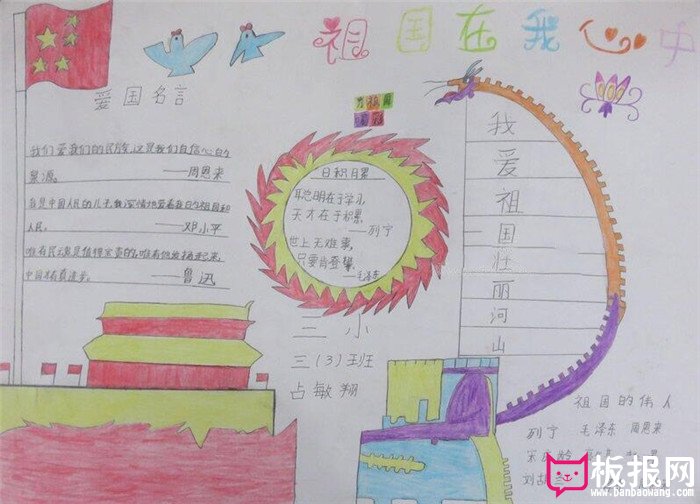 祖国在我心中
爱国名言
我们爱我们的民族,这是我们自信心的
泉源。——周恩来
我是中国人民的儿子,我深情地爱着我的祖国和
人民。——邓小平
唯有民魂是值得宝贵的,唯有他发扬起来,
中国才有真进步。——鲁迅
日积月累
聪明在于学习,
天才在于积累。
——列宁
世上无难事,
只要肯登攀。
——毛泽东
三小
三(3)班
占敏翔
我爱祖国壮丽河山
祖国的伟人
列宁 毛泽东 周恩来
宋庆龄
刘胡兰
板报网
www.banbaowang.com